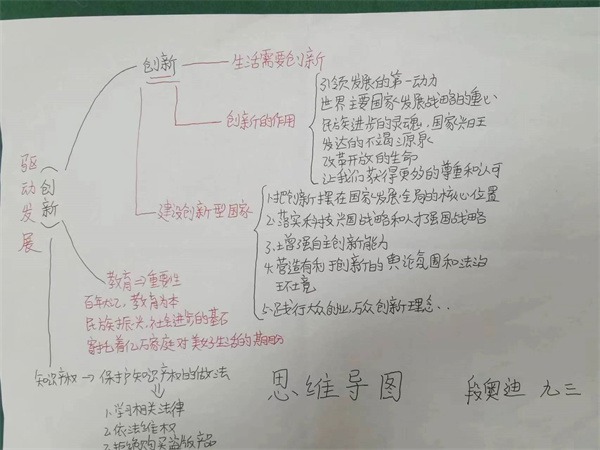 创新驱动发展
创新
生活需要创新
创新的作用
引领发展的第一动力
世界主要国家发展战略的重心
民族进步的灵魂、国家兴旺
发达的不竭源泉
改革开放的生命
让我们获得更多的尊重和认可
建设创新型国家
1.把创新摆在国家发展全局的核心位置
2.落实科技兴国战略和人才强国战略
3.增强自主创新能力
4.营造有利于创新的舆论氛围和法治
环境
5.践行大众创业,万众创新理念..
教育⇒重要性
百年大计,教育为本
民族振兴,社会进步的基石
寄托着亿万家庭对美好生活的期盼
知识产权→保护知识产权的做法
1.学习相关法律
2.依法维权
3.拒绝购买盗版产品
思维导图
段奥迪 九三